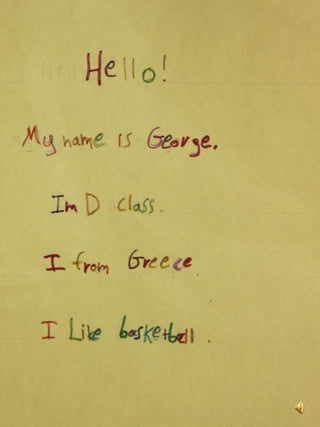 Hello!
My name is George.
Im D class.
I from Greece.
I Like basketball.